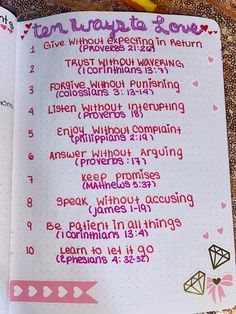 ten Ways to Love
1 Give Without Expecting in Return
(Proverbs 21:26)
2 TRUST WITHOUT WAVERING
(1 corinthians 13:7)
3 Forgive Without Punishing
(colossians 3:13-14)
4 Listen Without interupting
(Proverbs 18)
5 Enjoy Without Complaint
(philippians 2:14)
6 Answer Without Arguing
(proverbs :17)
7 keep Promises
(Matthews 5:37)
8 Speak Without accusing
(james 1-19)
9 Be Patient in all things
(1 corinthians 13:4)
10 Learn to let it go
(Ephesians 4:32-32)